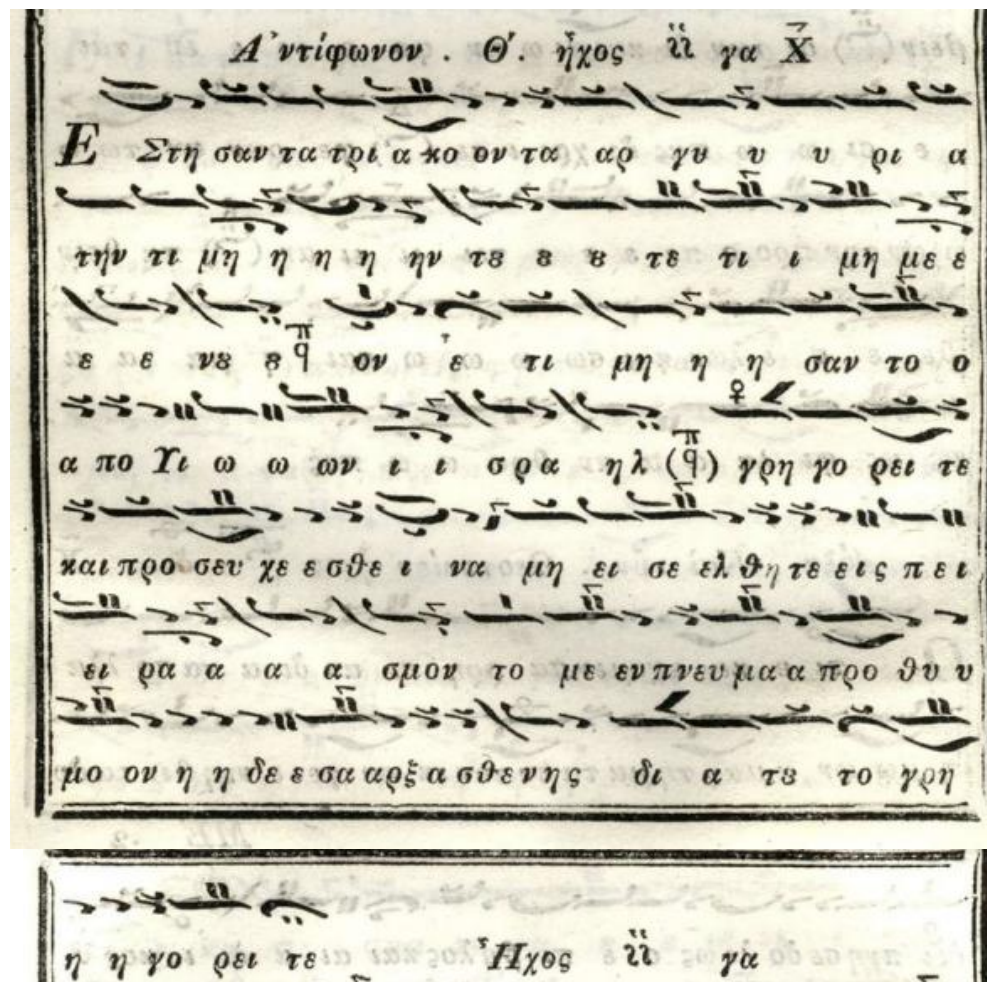 Ἀντίφωνον . Θ΄. ἦχος γα
Ε Στη σαν τα τρι α κο ον τα αρ γυ υ υ ρι α
την τι μη η η η ην τȣ ȣ ȣ τε τι ι μη με ε
ε ε νȣ ȣ ον ε τι μη η η σαν το ο
α πο Υι ω ω ων ι ι σρα ηλ γρη γο ρει τε
και προ σευ χε ε σθε ι να μη ει σε ελ θη τε εις πει
ει ρα α α α σμον το με εν πνευ μα α προ θυ υ
μο ον η η δε ε σα αρξ α σθε νης δι α τȣ το γρη
η η γο ρει τε Ἦχος γα